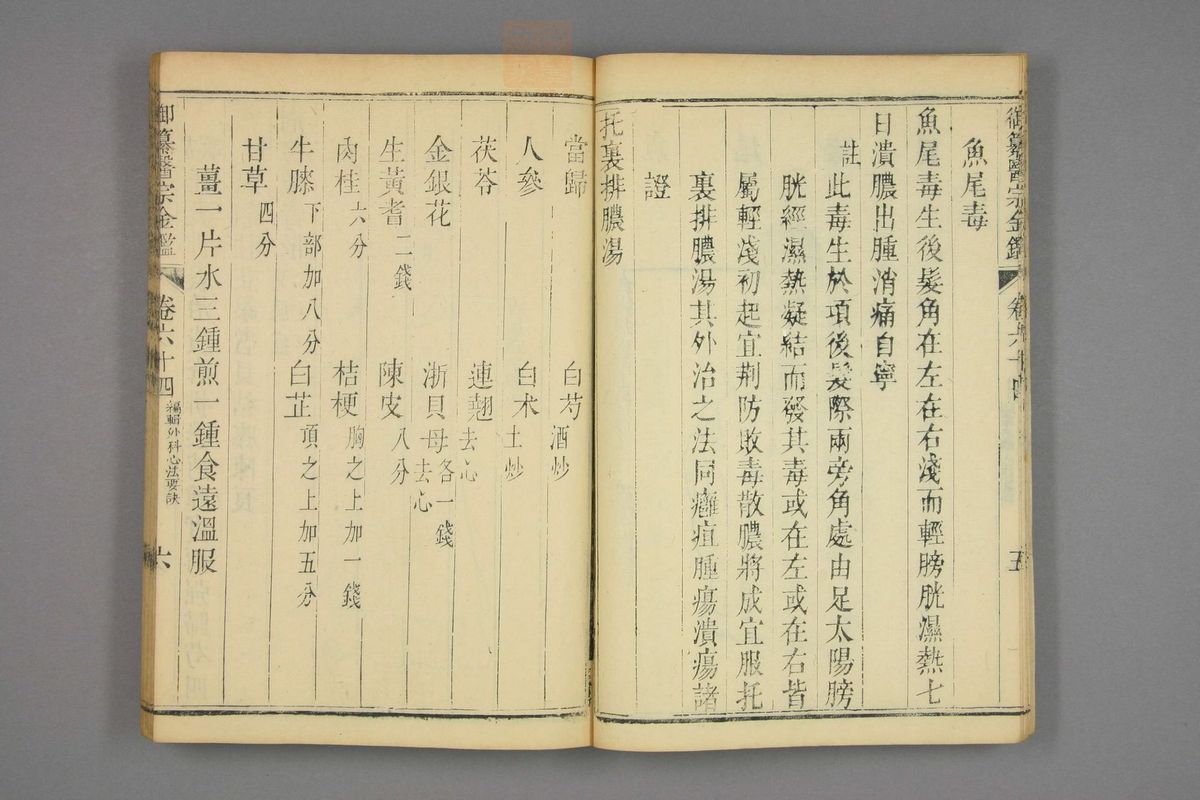 御纂醫宗金鑑 卷六十四 五
魚尾毒
魚尾毒生後髮角在左在右淺而輕膀胱濕熱七
日潰膿出腫消痛自寧
註 此毒生於項後髮際兩旁角處由足太陽膀
胱經濕熱凝結而發其毒或在左或在右皆
屬輕淺初起宜荆防敗毒散膿將成宜服托
裏排膿湯其外治之法同癰疽腫瘍潰瘍諸
證
托裏排膿湯
當歸 白芍酒炒
人參 白术土炒
茯苓 連翹去心
金銀花 浙貝母去心各一錢
生黃耆二錢 陳皮八分
肉桂六分 桔梗胸之上加一錢
牛膝下部加八分 白芷頂之上加五分
甘草四分
薑一片水三鍾煎一鍾食遠溫服
御纂醫宗金鑑 卷六十四 編輯外科心法要訣 六